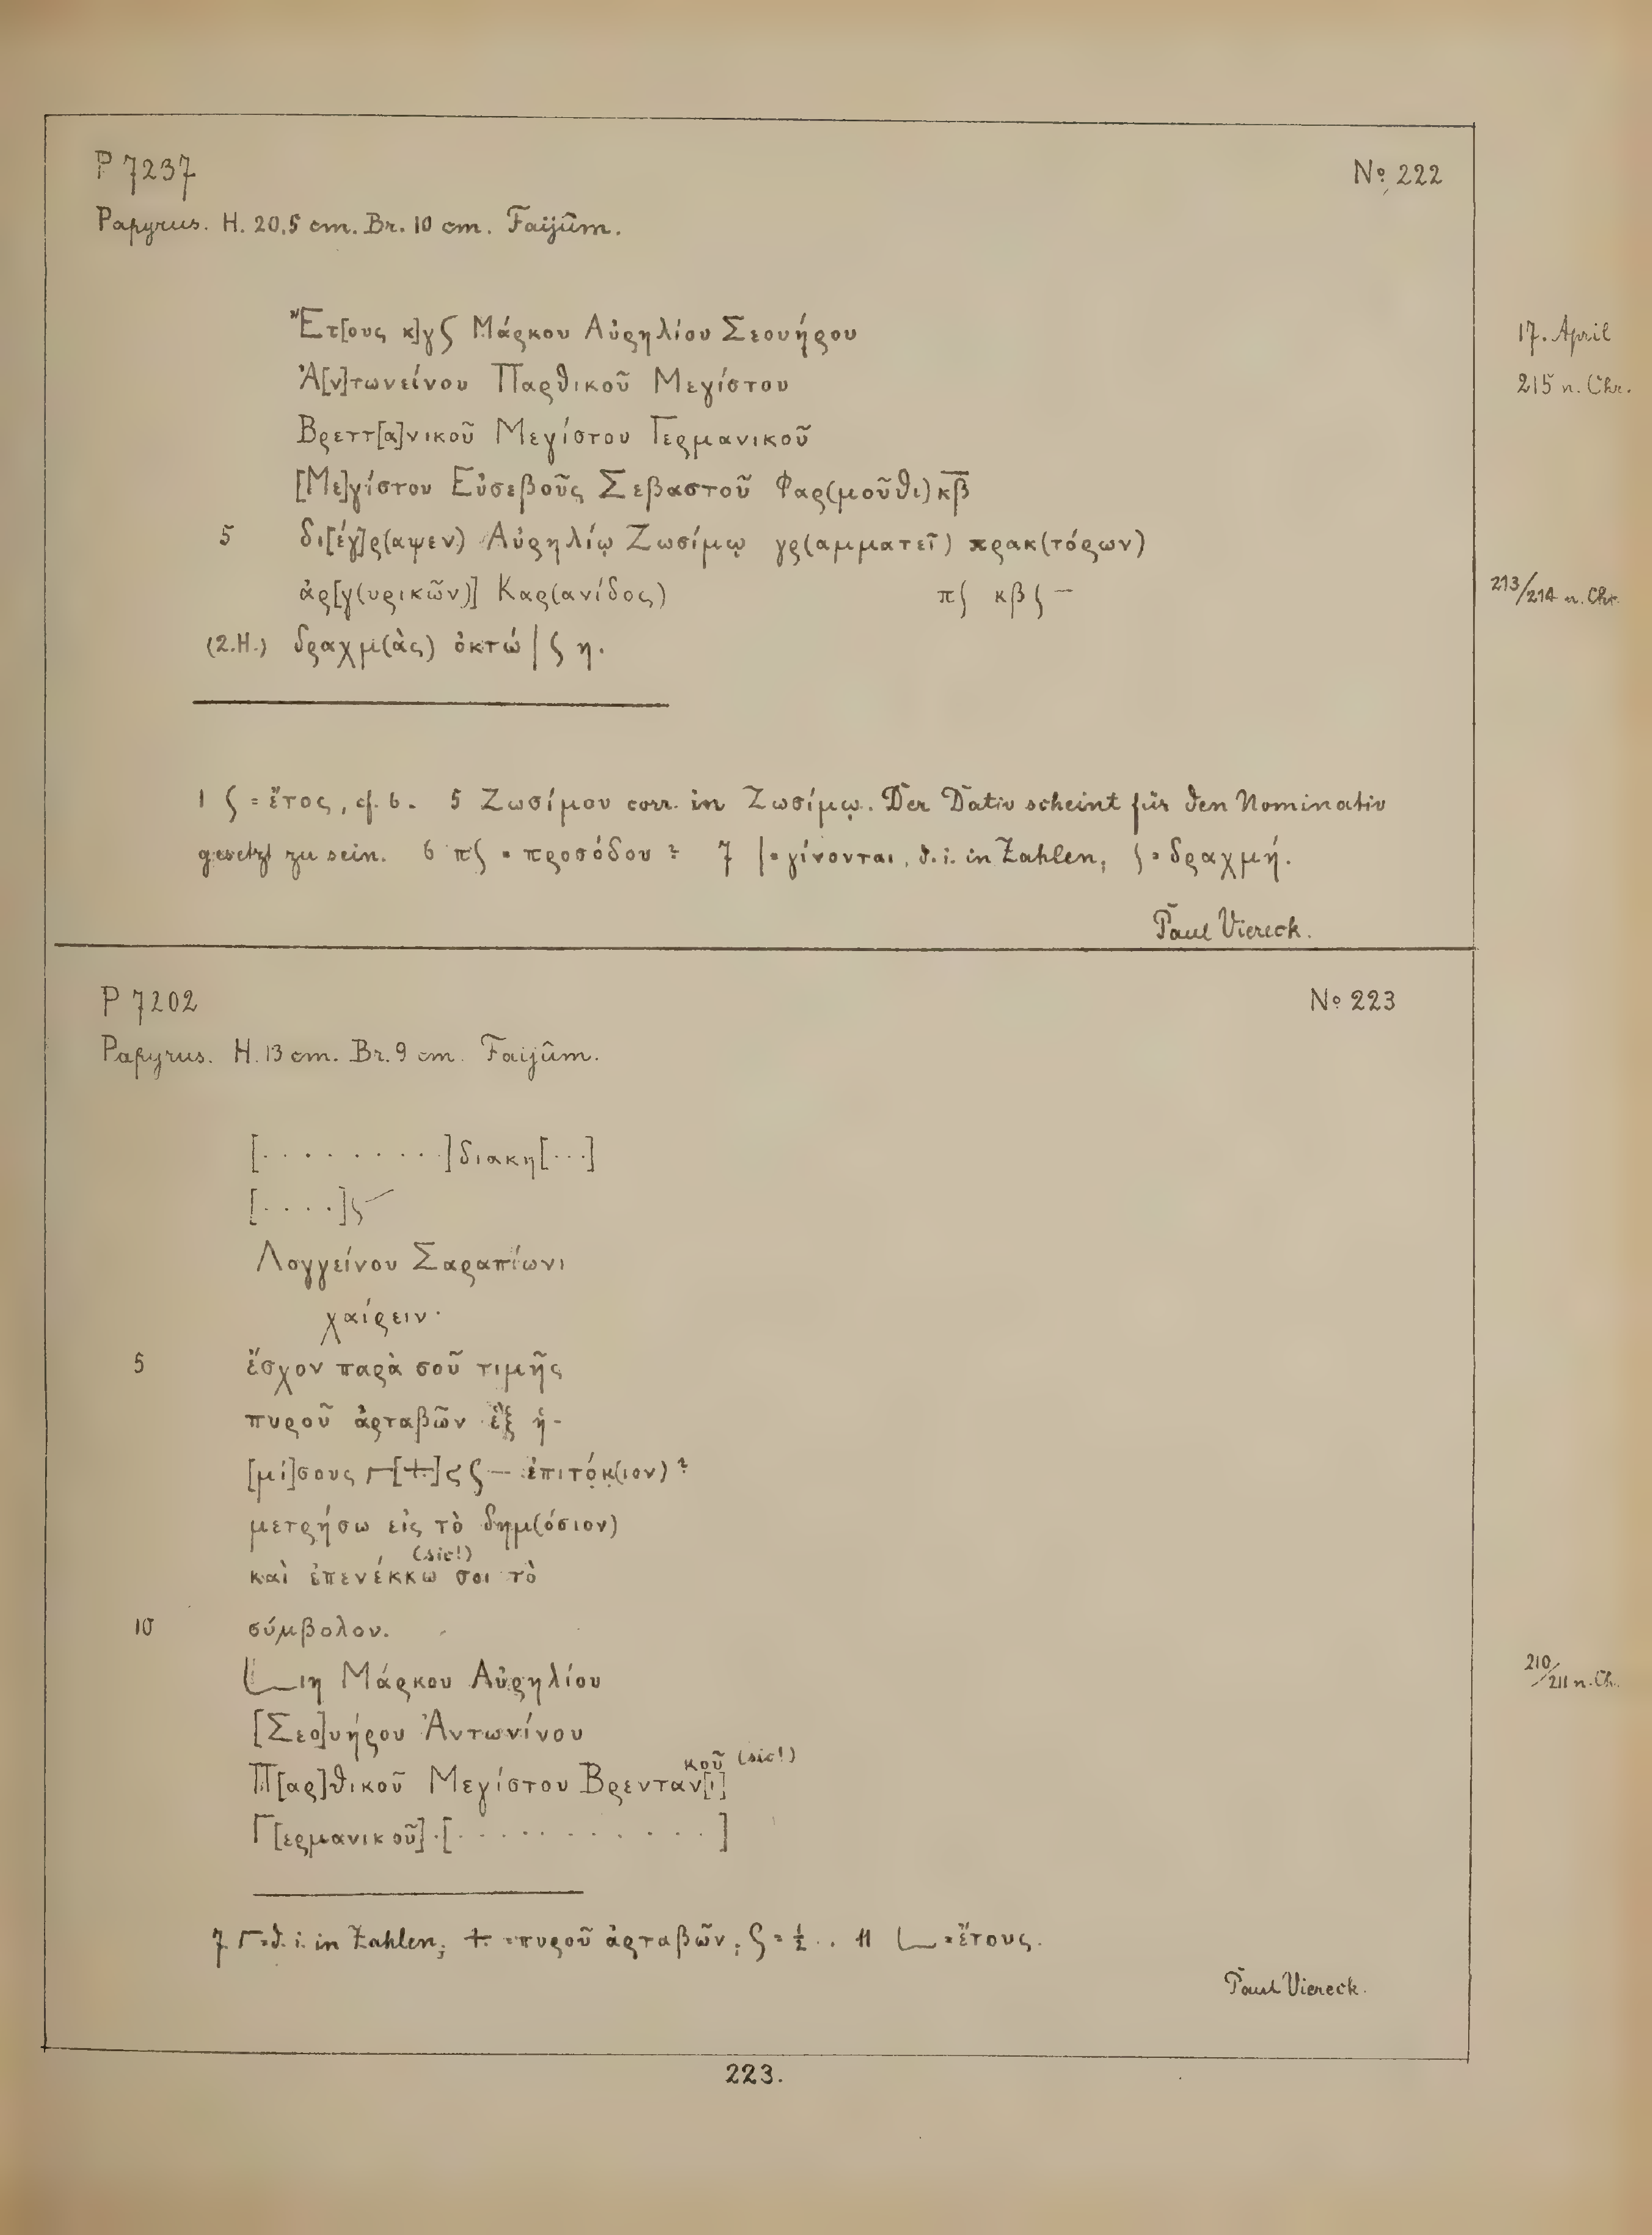 P 7237
No 222
Papyrus. H. 20,5 cm. Br. 10 cm. Faijûm.
Ἔτ[ους κ]γʃ Μάρκου Αὐρηλίου Σεουήρου
17. April
Ἀ[ν]τωνείνου Παρθικοῦ Μεγίστου
215 n. Chr.
Βρεττ[α]νικοῦ Μεγίστου Γερμανικοῦ
[Με]γίστου Εὐσεβοῦς Σεβαστοῦ Φαρ(μοῦθι) κβ̅
5 δι[έγ]ρ(αψεν) Αὐρηλίῳ Ζωσίμῳ γρ(αμματεῖ) πρακ(τόρων)
ἀρ[γ(υρικῶν)] Καρ(ανίδος) πʃ κβʃ —
213/214 n. Chr.
(2.H.) δραχμ(ὰς) ὀκτώ | ʃ η.
1 ʃ = ἔτος, cf. 6. 5 Ζωσίμου corr. in Ζωσίμῳ. Der Dativ scheint für den Nominativ
gesetzt zu sein. 6 πʃ = προσόδου? 7 | = γίνονται, d. i. in Zahlen; ʃ = δραχμή.
Paul Viereck.
P 7202
No 223
Papyrus. H. 13 cm. Br. 9 cm. Faijûm.
[· · · · · · · · ·]διακη[· · ·]
[· · · ·]ʃ
Λογγείνου Σαραπίωνι
χαίρειν·
5 ἔσχον παρὰ σοῦ τιμῆς
πυροῦ ἀρταβῶν ἓξ ἡ-
[μί]σους ┌[⨪]ϛʃ — ἐπιτό̣κ̣(ιον)?
μετρήσω εἰς τὸ δημ(όσιον)
(sic!)
καὶ ἐπενέκκω σοι τὸ
10 σύμβολον.
∟ιη Μάρκου Αὐρηλίου
210/211 n. Ch.
[Σεο]υήρου Ἀντωνίνου
κοῦ (sic!)
Π[αρ]θικοῦ Μεγίστου Βρενταν[ι]
Γ[ερμανικοῦ]·[· · · · · · · · · · ·]
7 ┌ = d. i. in Zahlen; ⨪ = πυροῦ ἀρταβῶν; ʃ = ½. 11 ∟ = ἔτους.
Paul Viereck.
223.